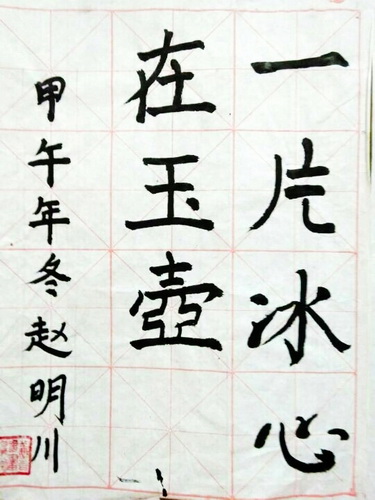 一片冰心
在玉壺
甲午年冬赵明川